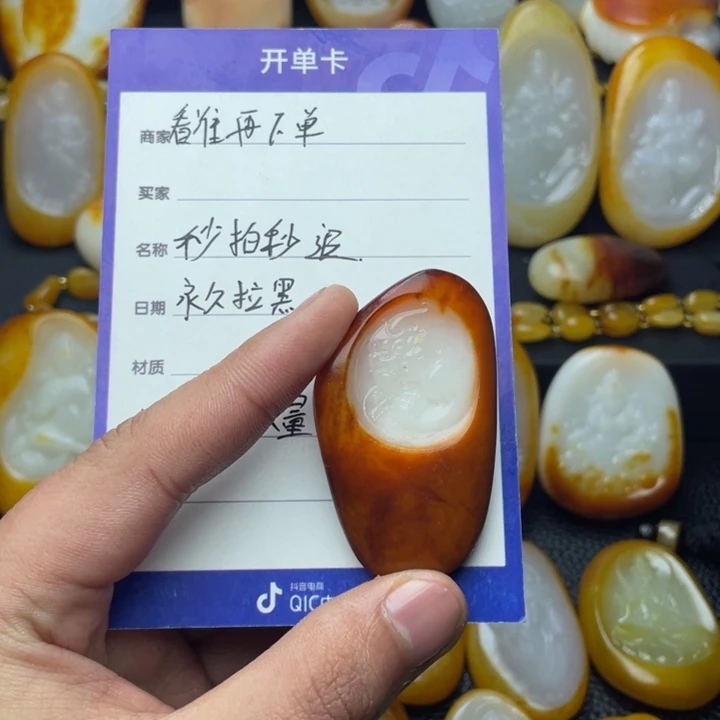 开单卡
商家 看准再下单
买家
名称 秒拍秒退
日期 永久拉黑
材质
量
抖音电商
QIC